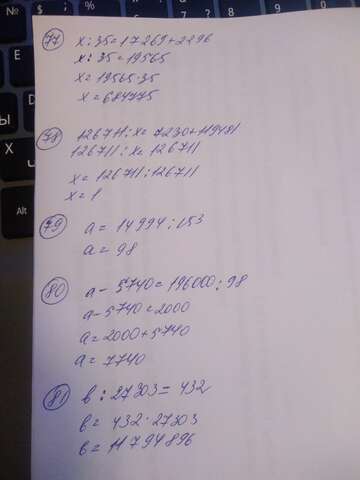 77
x : 35 = 17269 + 2296
x : 35 = 19565
x = 19565 · 35
x = 684775
78
126711 : x = 7230 + 119481
126711 : x = 126711
x = 126711 : 126711
x = 1
79
a = 14994 : 153
a = 98
80
a - 5740 = 196000 : 98
a - 5740 = 2000
a = 2000 + 5740
a = 7740
81
в : 27303 = 432
в = 432 · 27303
в = 11794896